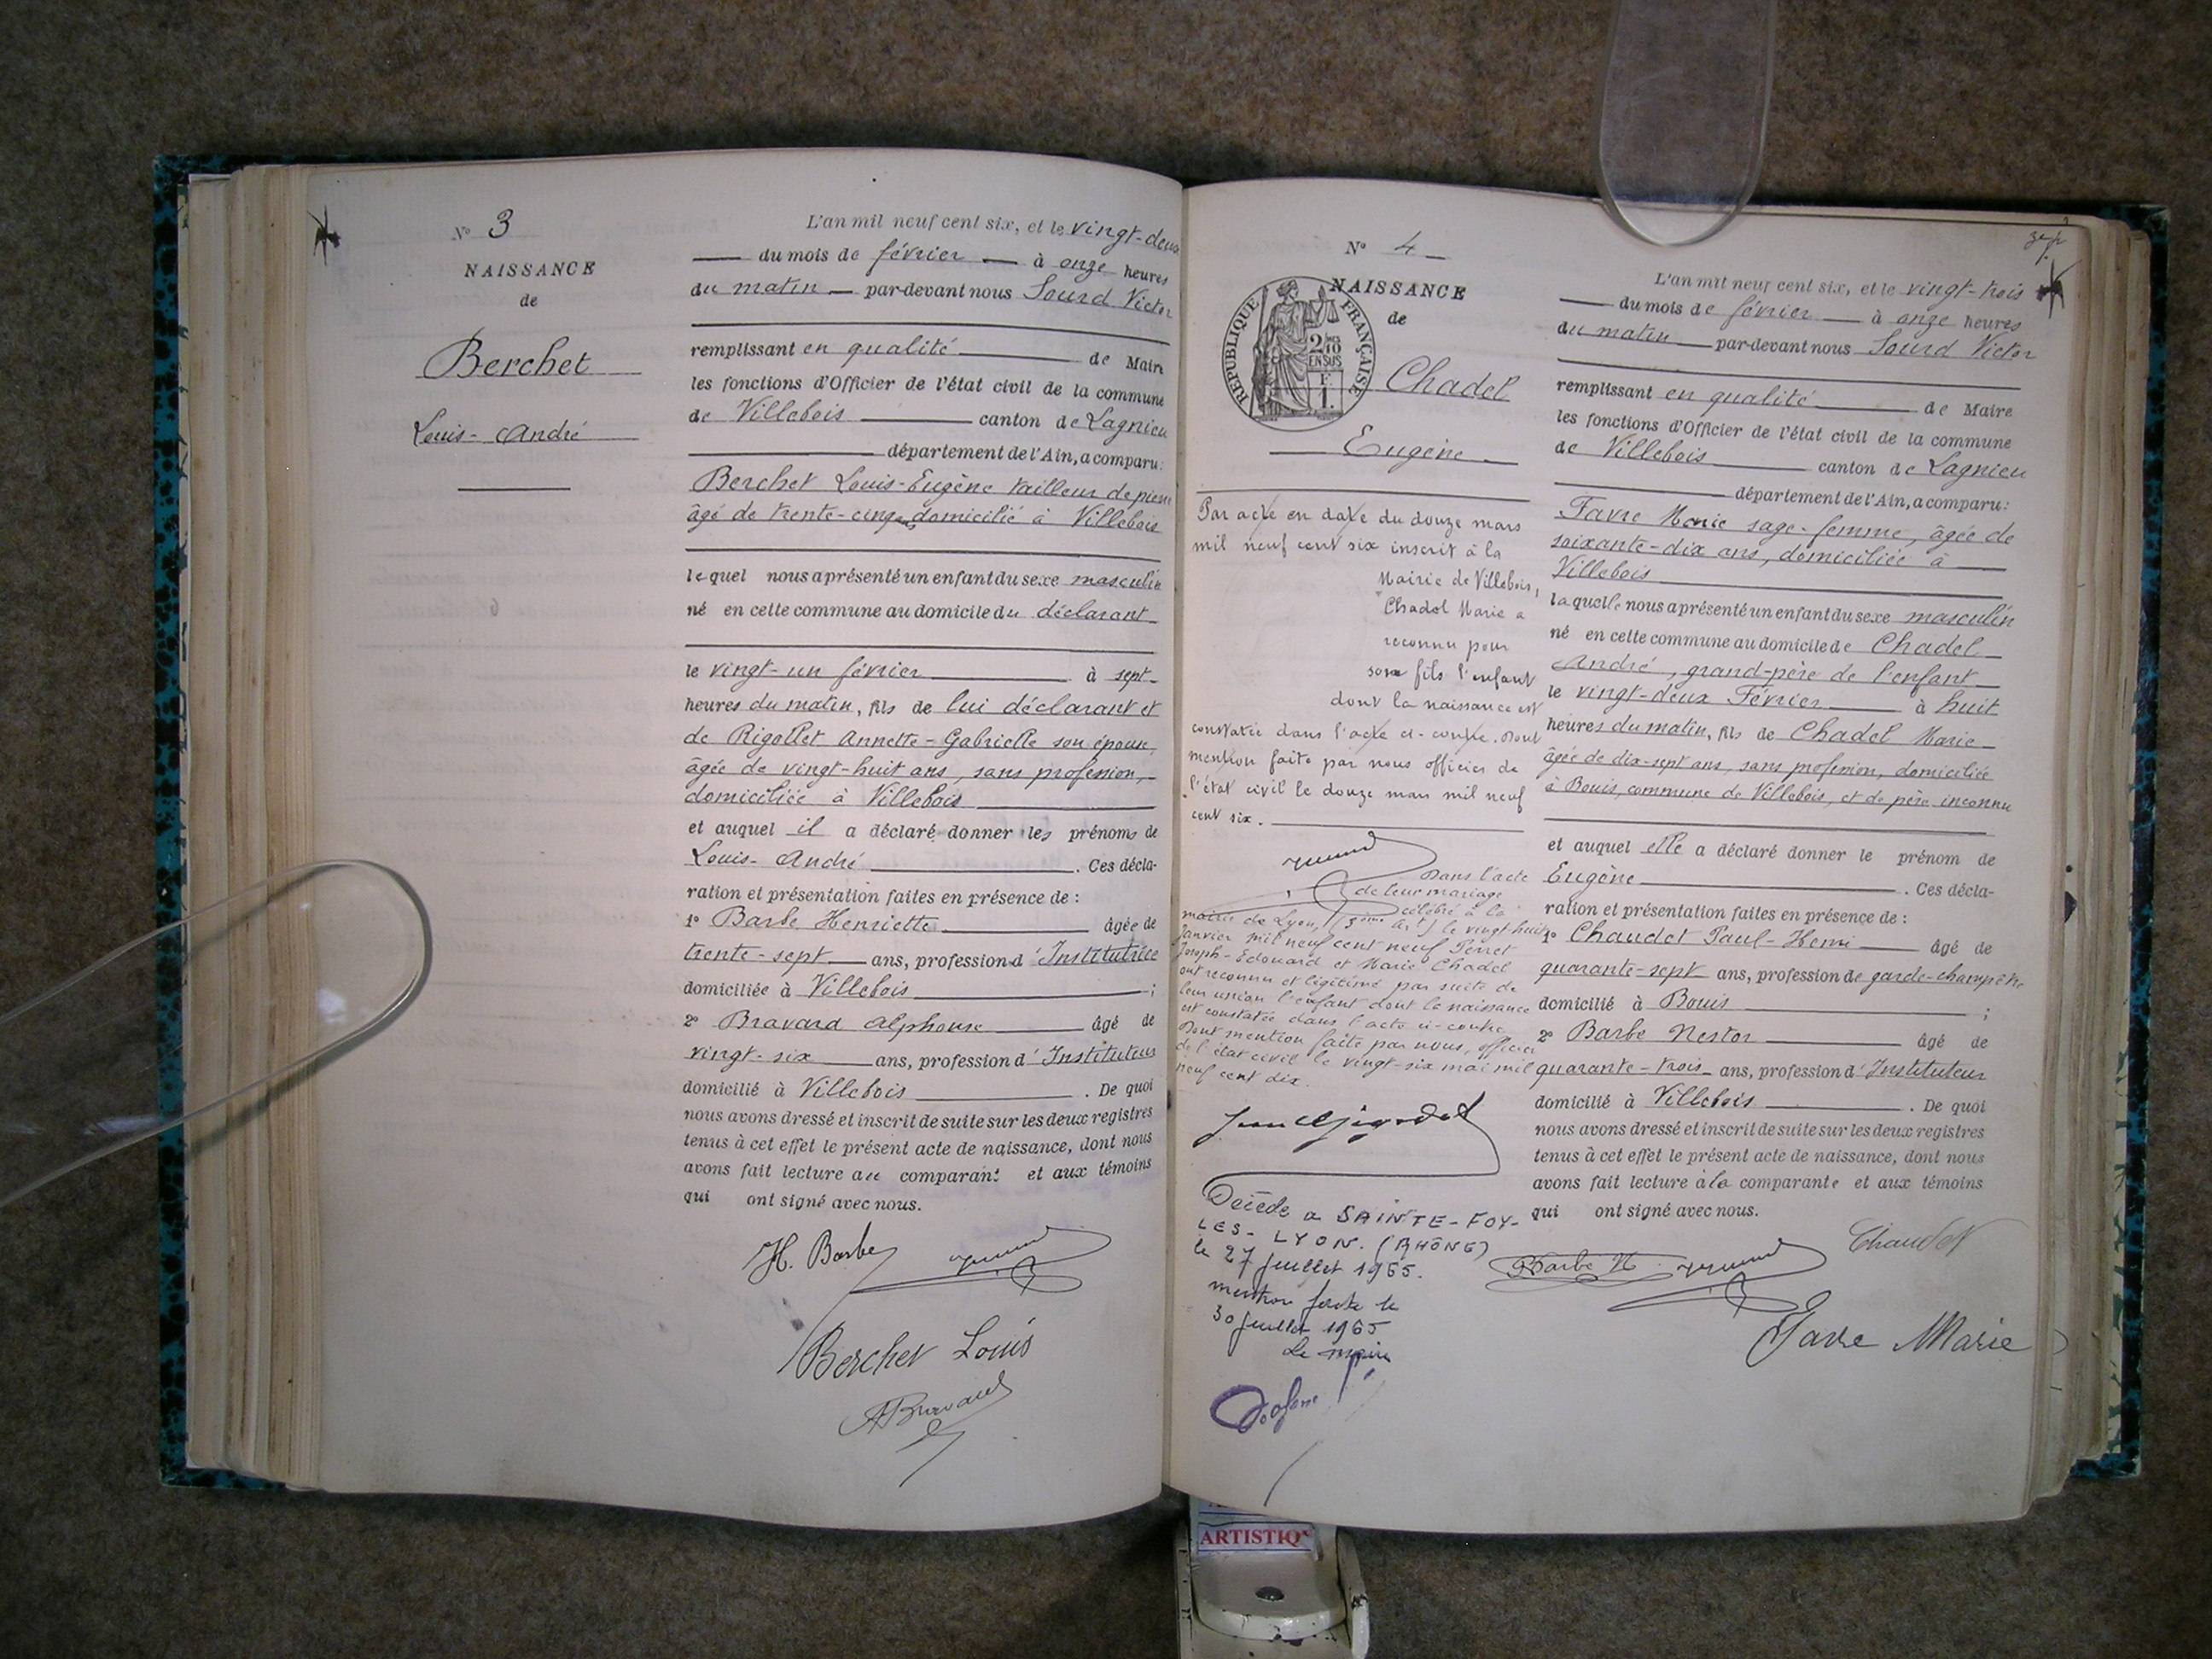 N° 3
NAISSANCE
de
Berchet
Louis-André
L'an mil neuf cent six, et le vingt-deux
du mois de février à onze heures
du matin par-devant nous Sourd Victor
remplissant en qualité de Maire
les fonctions d'Officier de l'état civil de la commune
de Villebois canton de Lagnieu
département de l'Ain, a comparu:
Berchet Louis-Eugène tailleur de pierre
âgé de trente-cinq ans domicilié à Villebois
lequel nous a présenté un enfant du sexe masculin
né en cette commune au domicile du déclarant
le vingt-un février à sept
heures du matin, fils de lui déclarant et
de Rigollet Annette-Gabrielle son épouse,
âgée de vingt-huit ans, sans profession,
domiciliée à Villebois
et auquel il a déclaré donner les prénoms de
Louis-André. Ces décla-
ration et présentation faites en présence de :
1° Barbe Henriette âgée de
trente-sept ans, profession d'Institutrice
domiciliée à Villebois ;
2° Bravard Alphonse âgé de
vingt-six ans, profession d'Instituteur
domicilié à Villebois. De quoi
nous avons dressé et inscrit de suite sur les deux registres
tenus à cet effet le présent acte de naissance, dont nous
avons fait lecture au comparant et aux témoins
qui ont signé avec nous.
H. Barbe
Berchet Louis
ABravard
N° 4
NAISSANCE
de
RÉPUBLIQUE FRANÇAISE
2/10 EN SUS
F. 1.
Chadel
Eugène
Par acte en date du douze mars
mil neuf cent six inscrit à la
Mairie de Villebois,
Chadel Marie a
reconnu pour
son fils l'enfant
dont la naissance est
constatée dans l'acte ci-contre. Dont
mention faite par nous officier de
l'état civil le douze mars mil neuf
cent six.
Dans l'acte
de leur mariage
célébré à la
mairie de Lyon, (3ème Art) le vingt huit
Janvier mil neuf cent neuf Perret
Joseph-Edouard et Marie Chadel
ont reconnu et légitimé par suite de
leur union l'enfant dont la naissance
est constatée dans l'acte ci-contre.
Dont mention faite par nous, officier
de l'état civil le vingt-six mai mil
neuf cent dix.
Décédé a SAINTE-FOY-
LES-LYON. (RHÔNE)
le 27 juillet 1965.
mention faite le
30 juillet 1965
Le maire
3e p.
L'an mil neuf cent six, et le vingt-trois
du mois de février à onze heures
du matin par-devant nous Sourd Victor
remplissant en qualité de Maire
les fonctions d'Officier de l'état civil de la commune
de Villebois canton de Lagnieu
département de l'Ain, a comparu:
Favre Marie sage-femme, âgée de
soixante-dix ans, domiciliée à
Villebois
laquelle nous a présenté un enfant du sexe masculin
né en cette commune au domicile de Chadel
André, grand-père de l'enfant
le vingt-deux Février à huit
heures du matin, fils de Chadel Marie
âgée de dix-sept ans, sans profession, domiciliée
à Bouis, commune de Villebois, et de père inconnu
et auquel elle a déclaré donner le prénom de
Eugène. Ces décla-
ration et présentation faites en présence de :
1° Chaudet Paul-Henri âgé de
quarante-sept ans, profession de garde-champêtre
domicilié à Bouis ;
2° Barbe Nestor âgé de
quarante-trois ans, profession d'Instituteur
domicilié à Villebois. De quoi
nous avons dressé et inscrit de suite sur les deux registres
tenus à cet effet le présent acte de naissance, dont nous
avons fait lecture à la comparante et aux témoins
qui ont signé avec nous.
Chaudet
Barbe N
Favre Marie
ARTISTIQ